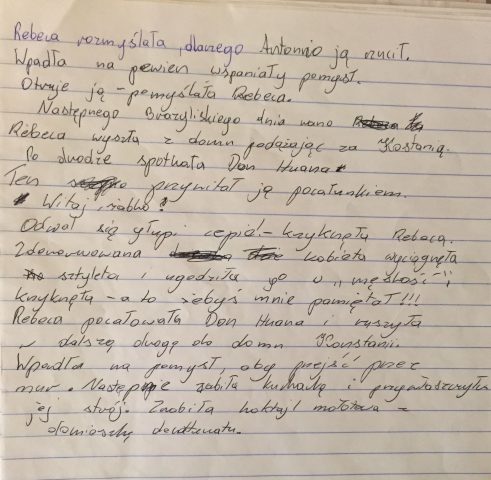 Rebeca rozmyślała, dlaczego Antonnio ją rzucił.
Wpadła na pewien wspaniały pomysł.
Otruje ją - pomyślała Rebeca.
Następnego Brazylijskiego dnia rano
Rebeca wyszła z domu podążając za Kostanią.
Po drodze spotkała Don Huana.
Ten przywitał ją pocałunkiem.
Witaj, żabko!
Odwal się głupi cepie! - krzyknęła Rebecą.
Zdenerwowana kobieta wyciągnęła
sztyleta i ugodziła go w "męskość",
krzyknęła - a to żebyś mnie pamiętał!!!
Rebeca pocałowała Don Huana i ruszyła
w dalszą drogę do domu Konstanii.
Wpadła na pomysł, aby przejść przez
mur. Następnie zabiła kucharkę i przywłaszczyła
jej strój. Zrobiła koktajl mołotowa z
domieszką